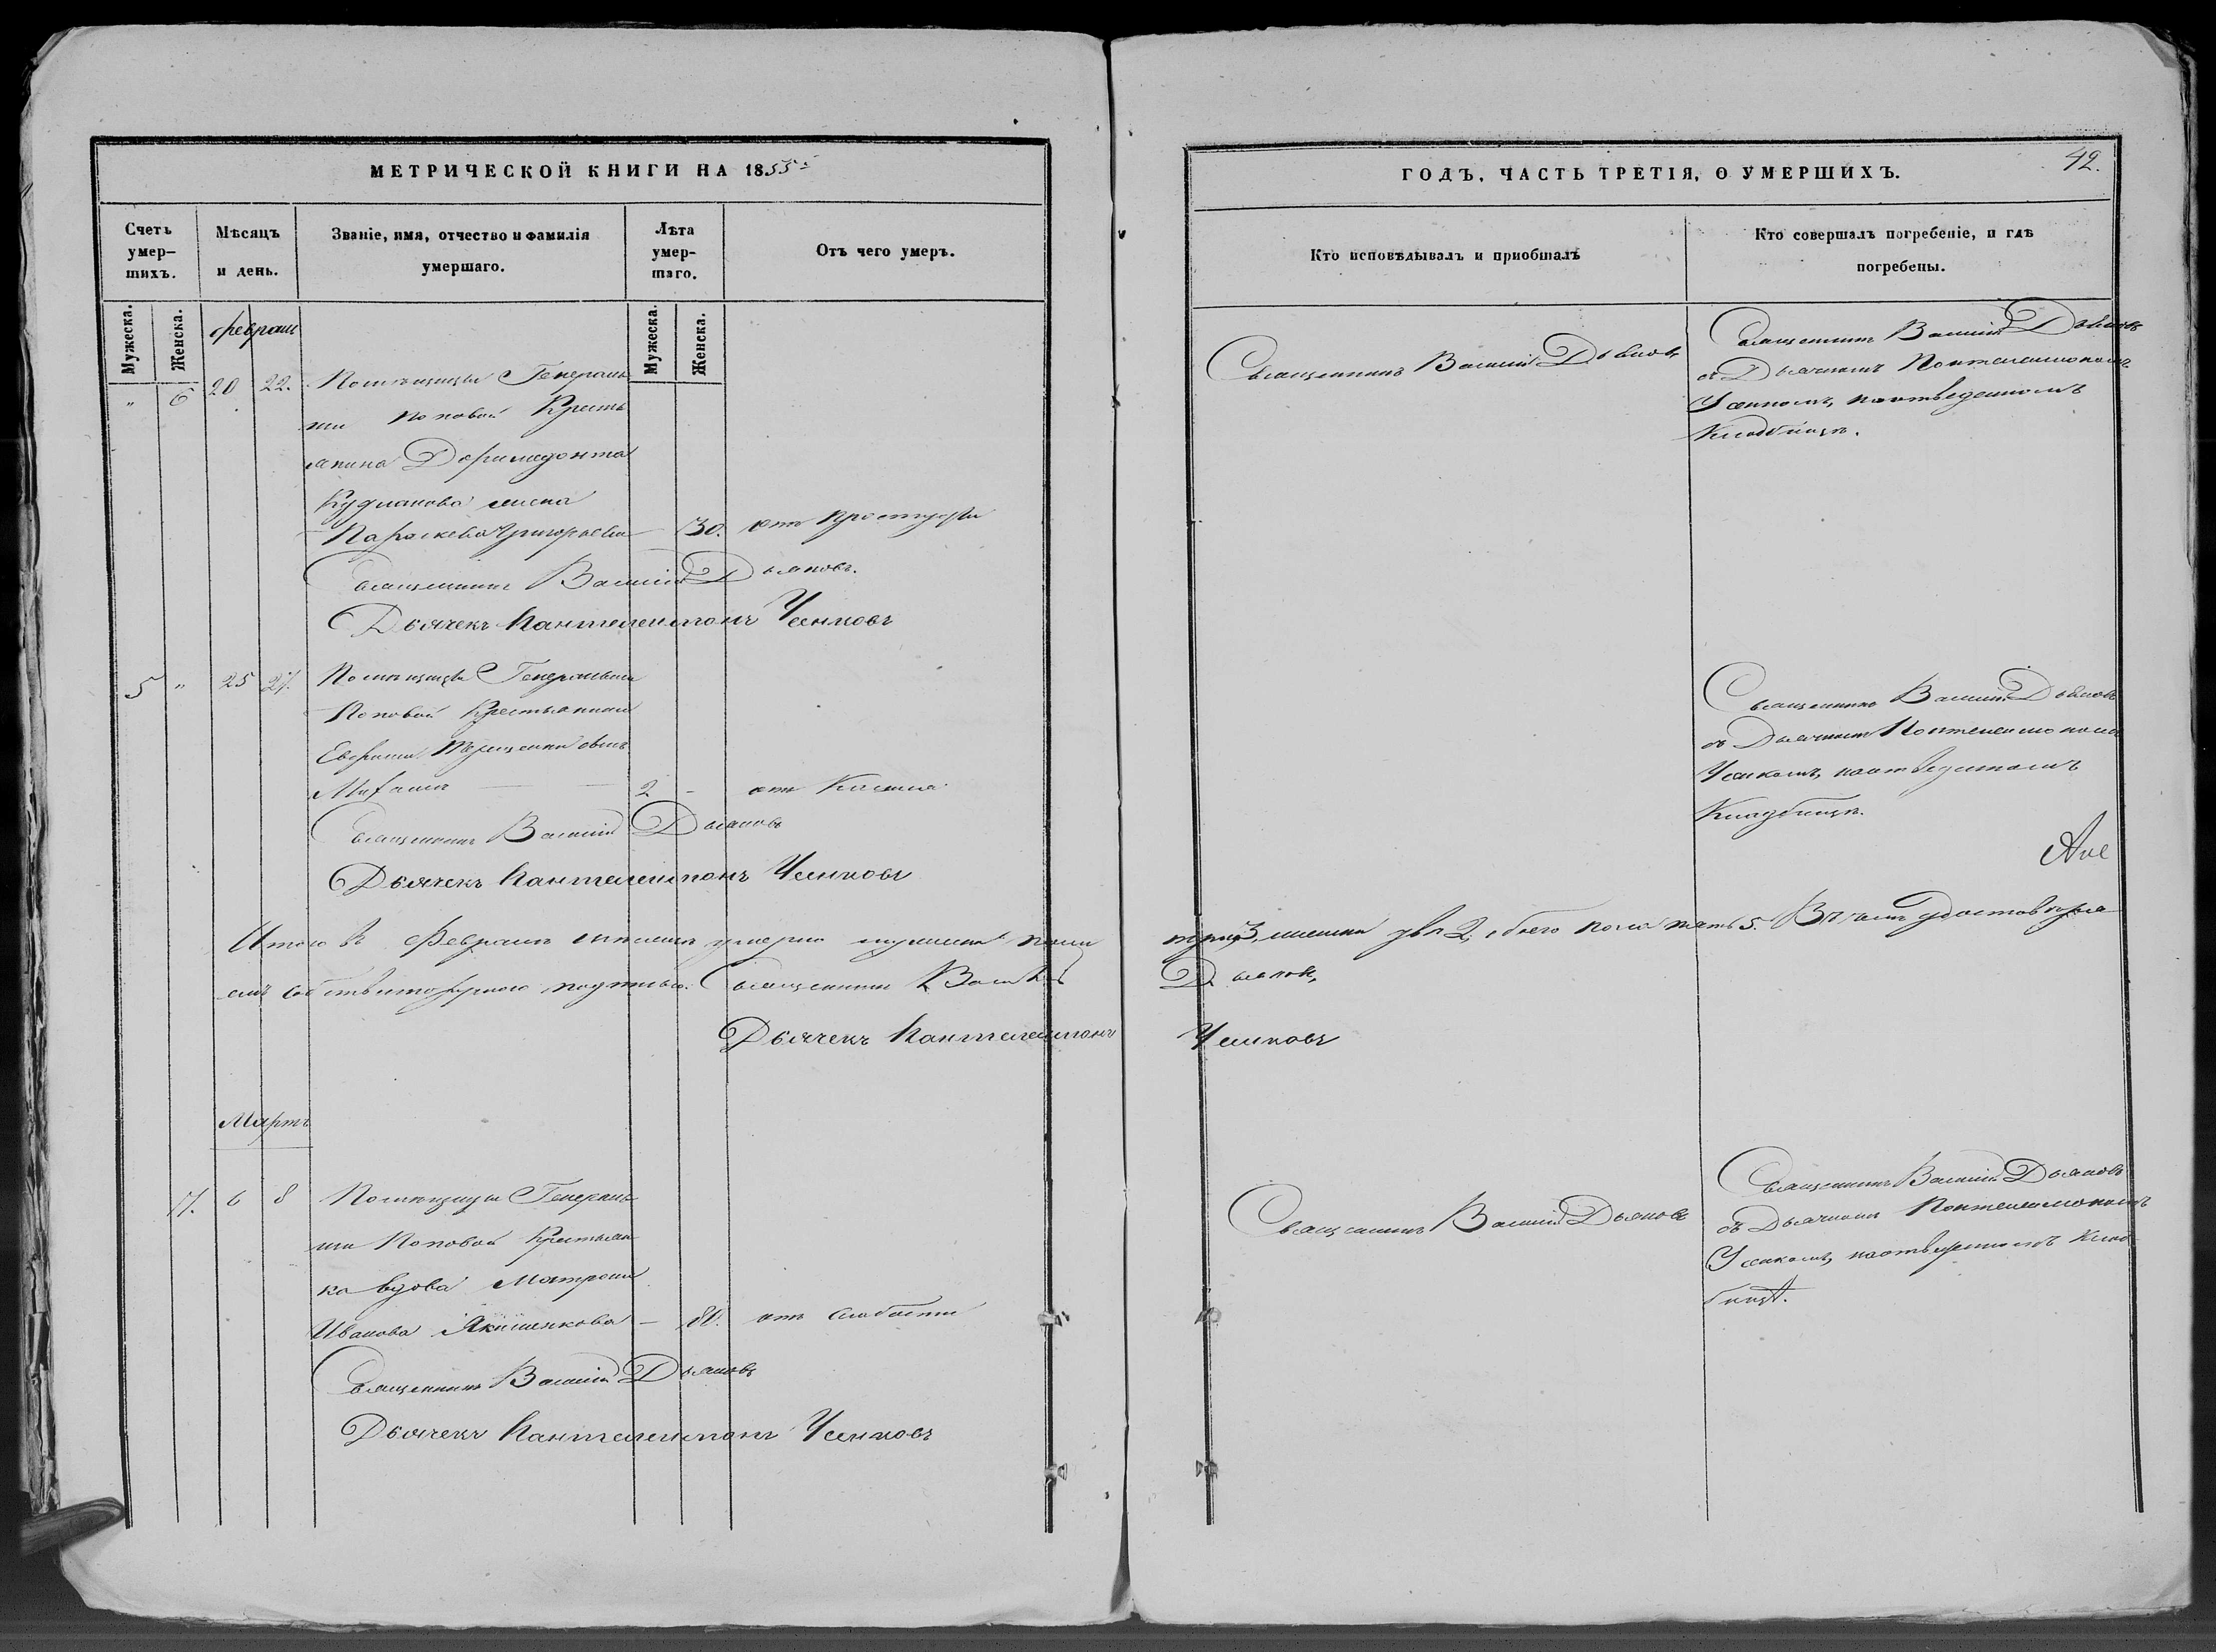 МЕТРИЧЕСКОЙ КНИГИ НА 1855
Счетъ умер-шихъ.
Мѣсяцъ и день.
Званіе, имя, отчество и фамилія умершаго.
Лѣта умер-шаго.
Отъ чего умеръ.
Мужеска.
Женска.
Мужеска.
Женска.
Февраль
" 6 20 22. Помѣщицы Генераль
ши Поповой Кресть
янина Доримедонта
жена
Параскева Григорьева — 30. отъ простуды
Священникъ Василій Дьяковъ.
Дьячекъ Пантелеимонъ
5 " 25 27. Помѣщицы Генеральши
Поповой Крестьянина
сынъ
2 - отъ Кашля
Священникъ Василій Дьяковъ
Дьячекъ Пантелеимонъ
Итого въ Февралѣ мѣсяцѣ умерло мужеска пола
Священникъ Василій
Дьячекъ Пантелеимонъ
Мартъ
7. 6 8 Помѣщицы Генераль
ши Поповой Крестьян
ка вдова Матрона
Иванова Якименкова — 80. отъ слабости
Священникъ Василій Дьяковъ
Дьячекъ Пантелеимонъ
ГОДЪ, ЧАСТЬ ТРЕТІЯ, О УМЕРШИХЪ.
42.
Кто исповѣдывалъ и пріобщалъ
Кто совершалъ погребеніе, и гдѣ погребены.
Священникъ Василій Дьяковъ
Священникъ Василій Дьяковъ
съ Дьячкомъ Пантелеимономъ
на отведенномъ
Кладбищѣ.
Священникъ Василій Дьяковъ
съ Дьячкомъ Пантелеимономъ
на отведенномъ
Кладбищѣ.
три 3, женска два 2, обоего пола пять 5. Въ чемъ удостовѣряе
Дьяковъ,
Священникъ Василій Дьяковъ
Священникъ Василій Дьяковъ
съ Дьячкомъ Пантелеимономъ
на отведенномъ Клад
бищѣ.